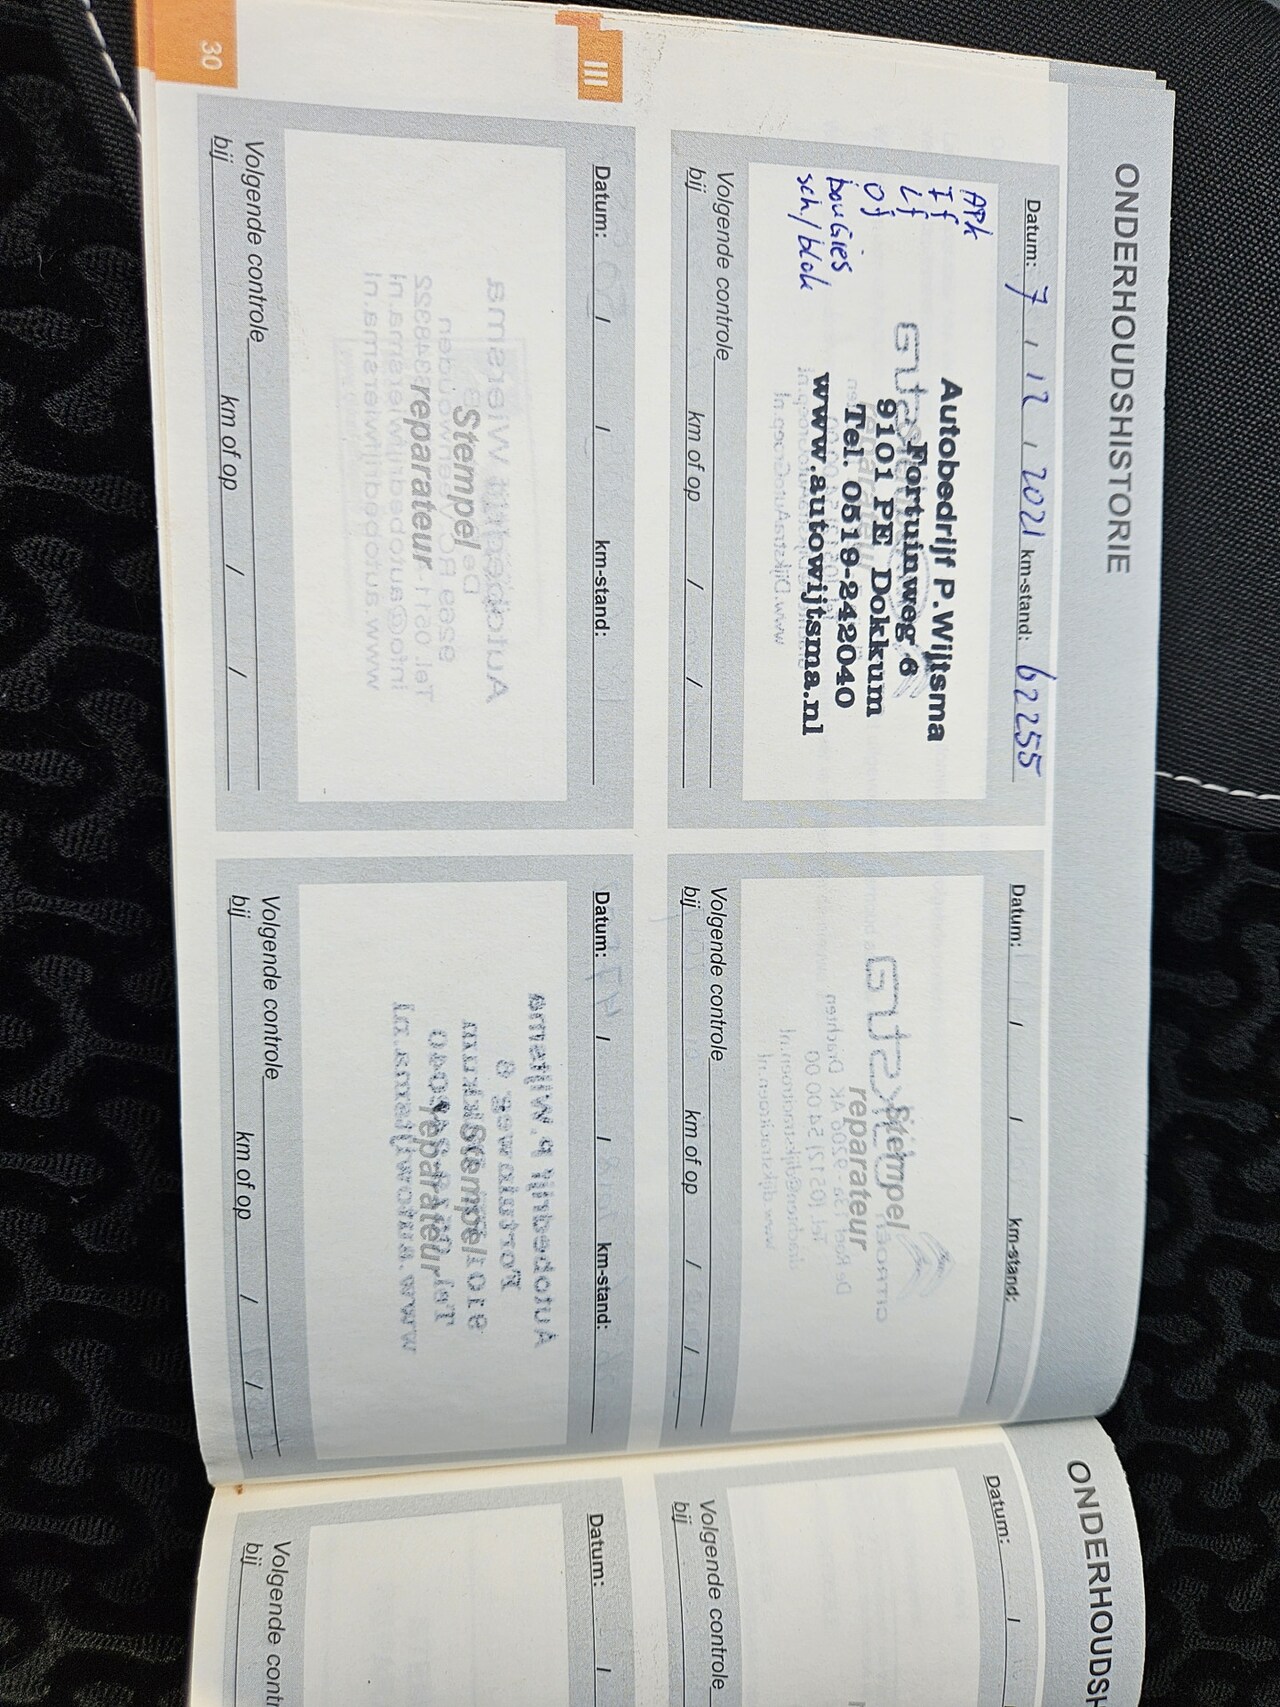 ONDERHOUDSHISTORIE
Datum: 7 / 12 / 2021 km-stand: 62255
APK
If
Lf
Of
bougies
sch/blok
Autobedrijf P.Wijtsma
Fortuinweg 6
9101 PE Dokkum
Tel. 0519-242040
www.autowijtsma.nl
Volgende controle
bij km of op / /
Datum: / / km-stand:
Stempel
reparateur
Volgende controle
bij km of op / /
III
Datum: / / km-stand:
Stempel
reparateur
Volgende controle
bij km of op / /
Datum: / / km-stand:
Stempel
reparateur
Volgende controle
bij km of op / /
30
ONDERHOUDSH
Datum: /
Volgende controle
bij
Datum: / /
Volgende contr
bij